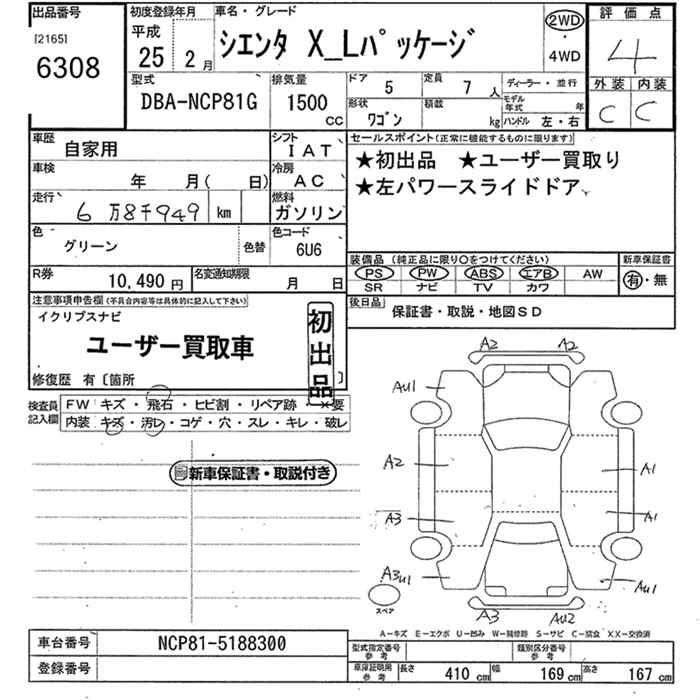 出品番号
[2165]
6308
初度登録年月
平成
25 2月
車名・グレード
シエンタ X_Lパッケージ
2WD
・
4WD
評価点
4
外装 内装
C C
型式
DBA-NCP81G
排気量
1500
CC
ドア
5
定員
7人
ディーラー・並行
形状
ワゴン
積載
kg
モデル年式 年
ハンドル 左・右
車歴
自家用
シフト
IAT
車検
年 月( 日)
冷房
AC
走行
6万8千949 km
燃料
ガソリン
色
グリーン
色替
色コード
6U6
R券
10,490円
名変通知期限
月 日
セールスポイント(正常に機能するものに限ります)
★初出品 ★ユーザー買取り
★左パワースライドドア
装備品 (純正品に限り○をつけてください)
PS PW ABS エアB AW
SR ナビ TV カワ
新車保証書
有・無
後日品
保証書・取説・地図SD
注意事項申告欄(不具合内容等は具体的に記入して下さい)
イクリプスナビ
ユーザー買取車
初出品
修復歴 有〔箇所 〕
検査員記入欄
FW キズ・飛石・ヒビ割・リペア跡・×要
内装 キズ・汚レ・コゲ・穴・スレ・キレ・破レ
新車保証書・取説付き
A2 A2
AU1
A2 A1
A3 A1
A3U1 AU1
スペア
A3 AU2
A―キズ E―エクボ U―凹み W―補修跡 S―サビ C―腐食 XX―交換済
車台番号
NCP81-5188300
登録番号
型式指定番号
参考
類別区分番号
参考
車庫証明用
参考
長さ 410cm 幅 169cm 高さ 167cm